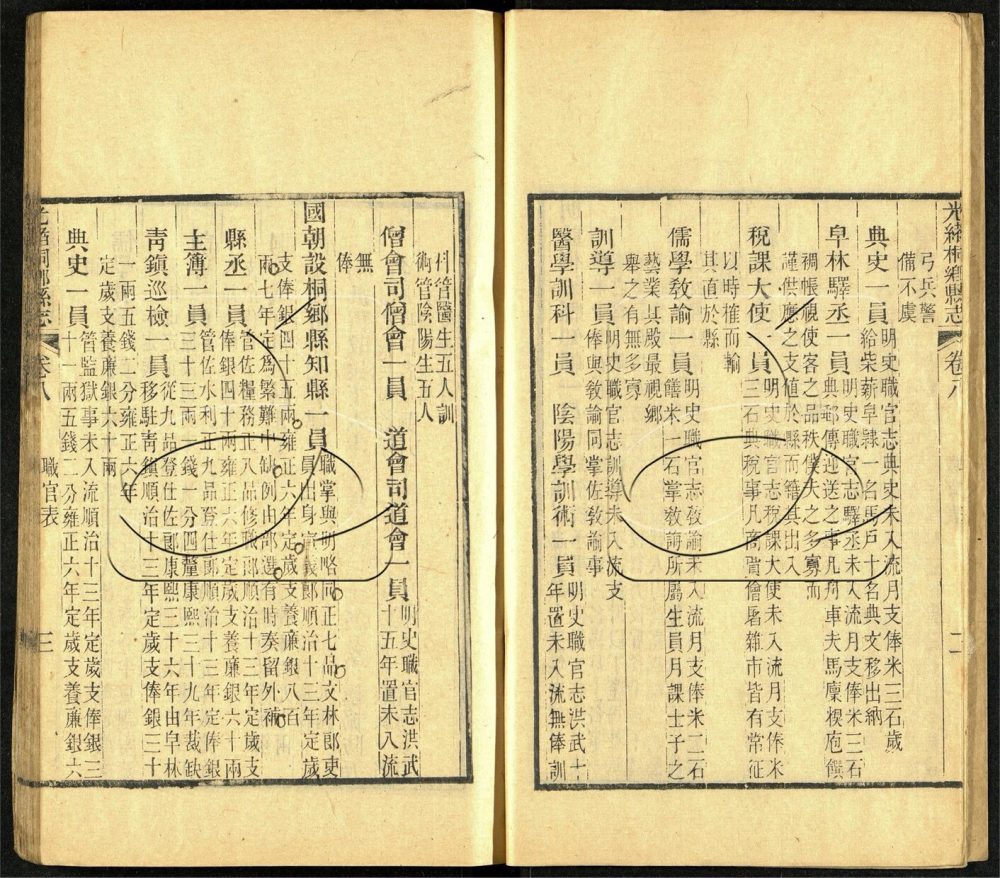 光緒桐鄉縣志 卷八 二
弓兵警
備不虞
典史一員 明史職官志典史未入流月支俸米三石歲
給柴薪皁隸一名馬戶十名典文移出納
皁林驛丞一員 明史職官志驛丞未入流月支俸米三石
典郵傳迎送之事凡舟車夫馬廩糗庖饌
裯帳視使客之品秩僕夫之多寡而
謹供應之支值於縣而籍其出入
稅課大使一員 明史職官志稅課大使未入流月支俸米
三石典稅事凡商賈儈屠雜市皆有常征
以時榷而輸
其直於縣
儒學教諭一員 明史職官志教諭未入流月支俸米二石
餼米一石掌教誨所屬生員月課士子之
藝業其殿最視鄉
舉之有無多寡
訓導一員 明史職官志訓導未入流支
俸與教諭同掌佐教諭事
醫學訓科一員 陰陽學訓術一員 明史職官志洪武十
年置未入流無俸訓
科管醫生五人訓
術管陰陽生五人
僧會司僧會一員 道會司道會一員 明史職官志洪武
十五年置未入流
無
俸
國朝設桐鄉縣知縣一員 職掌與明略同正七品文林郎吏
員出身宣義郎順治十三年定歲
支俸銀四十五兩雍正六年定歲支養廉銀八百
兩七年定爲繁難中缺例由部選有時奏留外補
縣丞一員 管佐糧務正八品修職郎順治十三年定歲支
俸銀四十兩雍正六年定歲支養廉銀六十兩
主簿一員 管佐水利正九品登仕郎順治十三年定俸銀
三十三兩一錢一分四釐康熙三十九年裁缺
青鎮巡檢一員 從九品登仕佐郎康熙三十六年由皁林
移駐青鎮順治十三年定歲支俸銀三十
一兩五錢二分雍正六年
定歲支養廉銀六十兩
典史一員 管監獄事未入流順治十三年定歲支俸銀三
十一兩五錢二分雍正六年定歲支養廉銀六
光緒桐鄉縣志 卷八 職官表 三